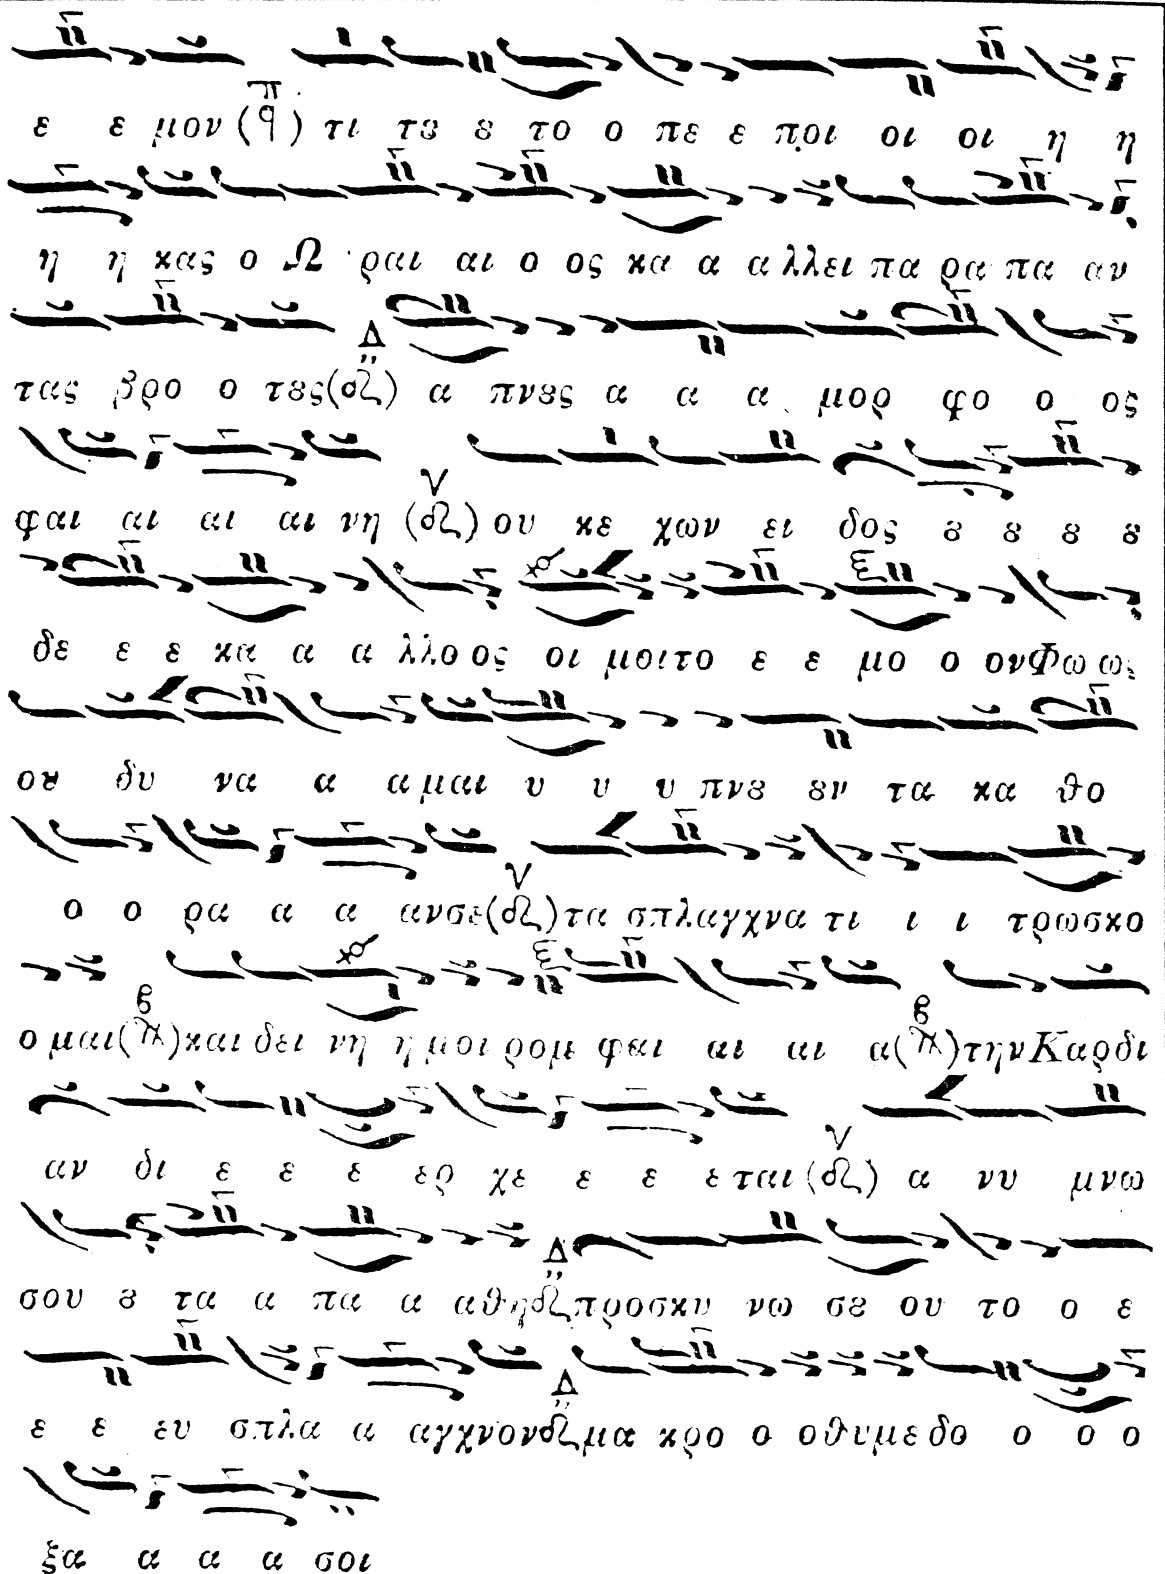 ε ε μον (π ϙ) τι τȣ ȣ το ο πε ε ποι οι οι η η
η η κας ο Ω ραι αι ο ος κα α α λλει πα ρα πα αν
τας βρο ο τȣς (Δ) α πνȣς α α α μορ φο ο ος
φαι αι αι αι νη (ν) ου κε χων ει δος ȣ ȣ ȣ ȣ
δε ε ε κα α α λλο ος οι μοι το ε ε μο ο ον Φω ως
ου δυ να α α μαι υ υ υ πνȣ ȣν τα κα θο
ο ο ρα α α αν σε (ν) τα σπλαγχνα τι ι ι τρωσκο
ο μαι (β) και δει νη η μοι ρομ φαι αι αι α (β) την Καρδι
αν δι ε ε ε ερ χε ε ε ε ται (ν) α νυ μνω
σου ȣ τα α πα α α θη Δ προσκυ νω σȣ ου το ο ε
ε ε ευ σπλα α αγχνον Δ μα κρο ο ο θυμε δο ο ο ο
ξα α α α σοι